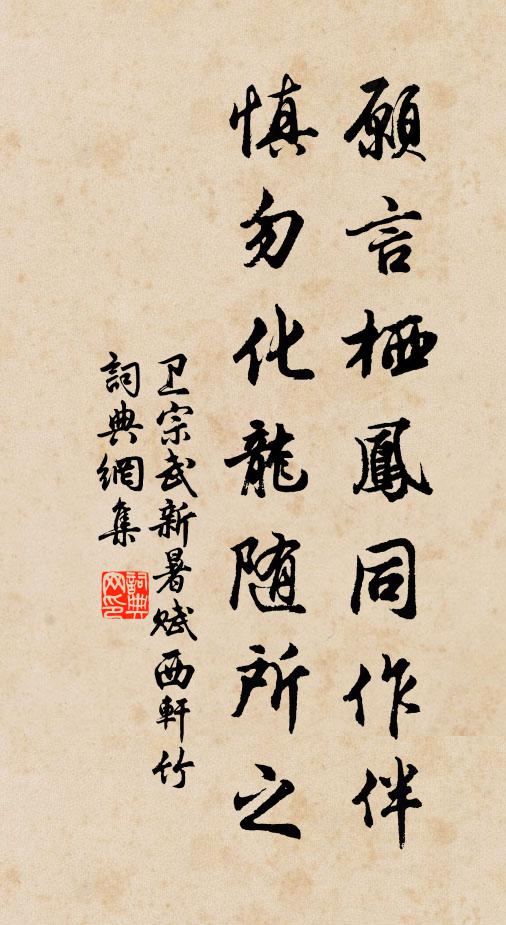 願言栖鳳同作伴
慎勿化龍随所之
卫宗武新暑賦西軒竹
詞典網集
詞典网印